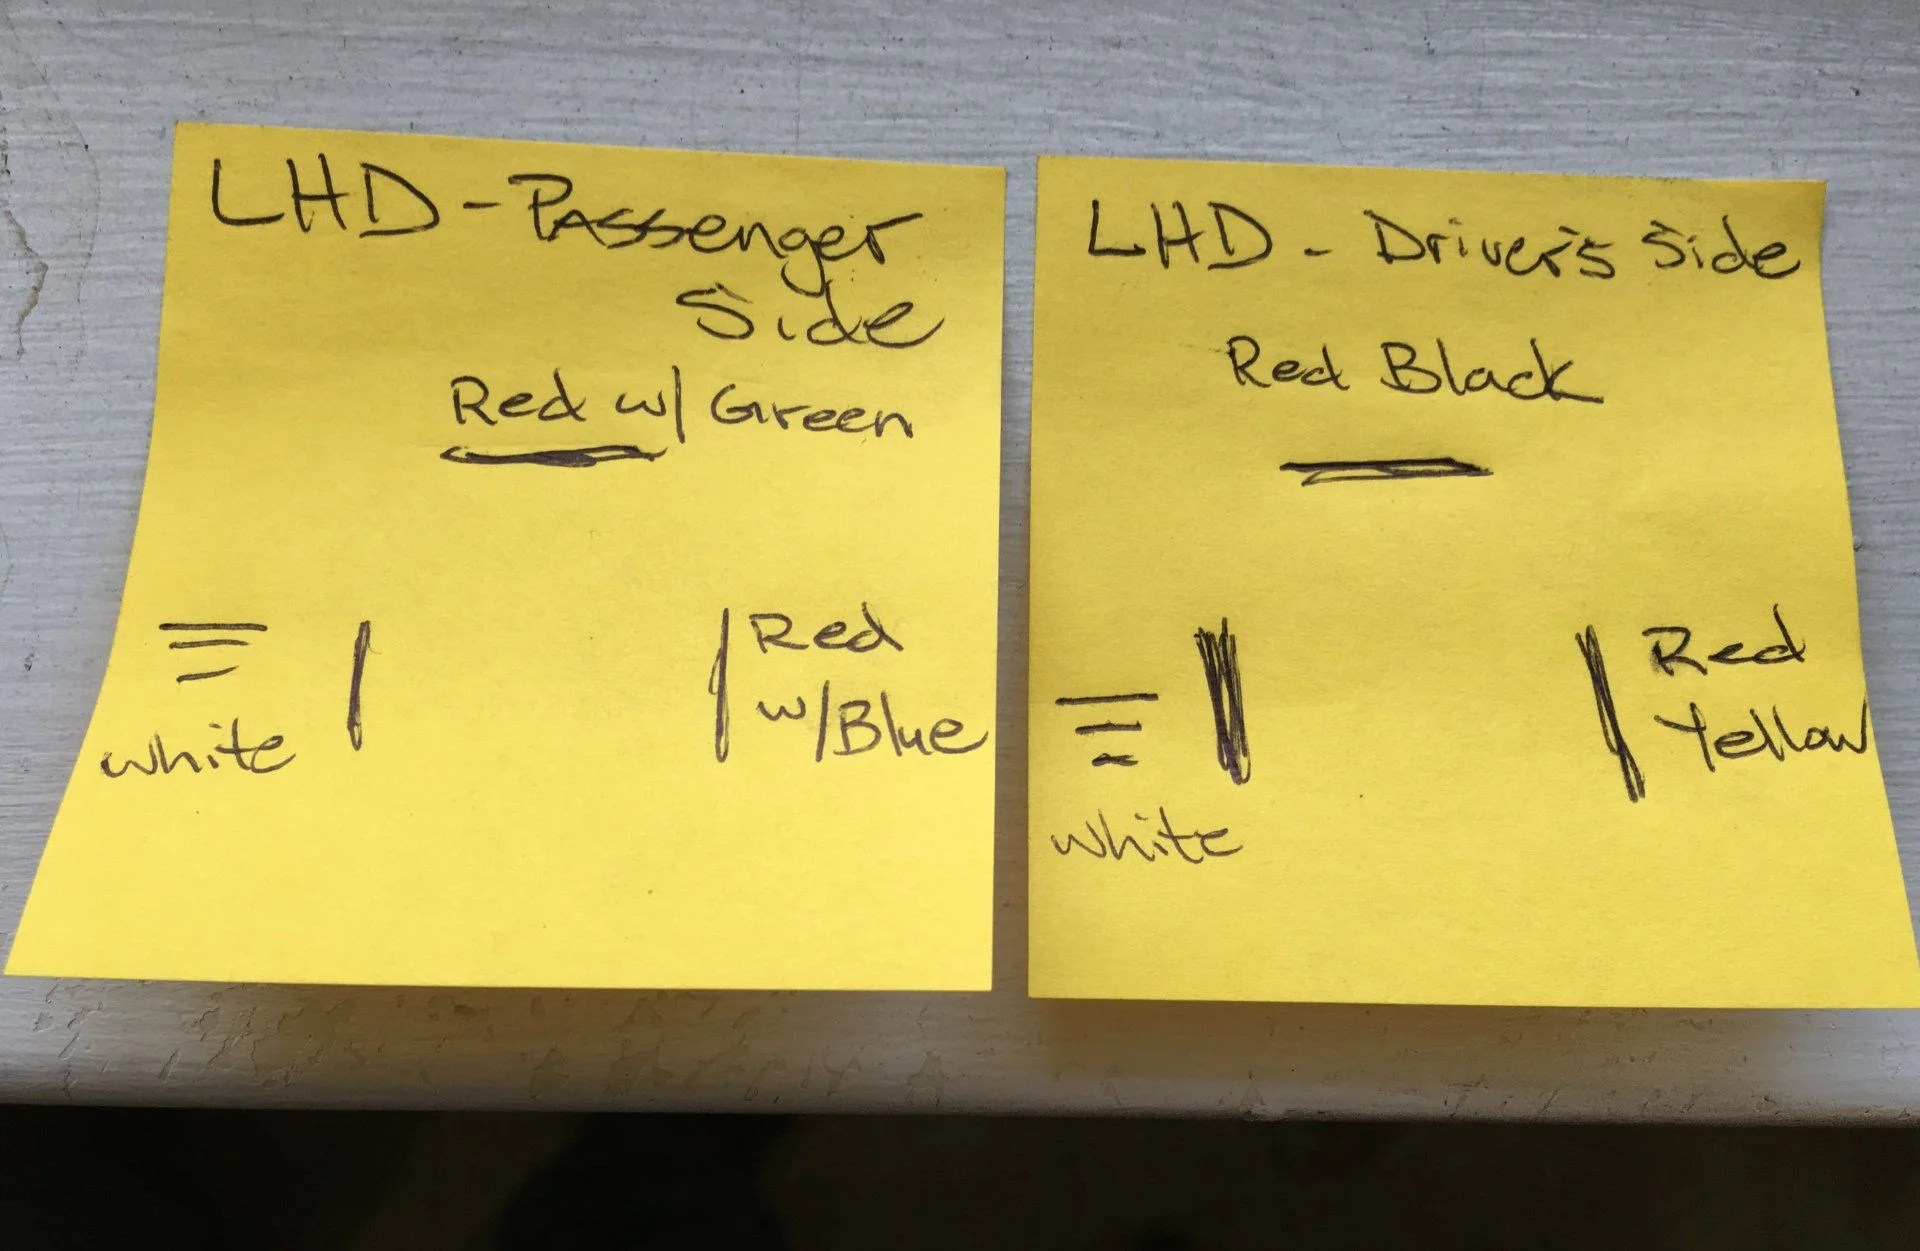 LHD - Passenger
Side
Red w/ Green
white
Red
w/Blue
LHD - Driver's Side
Red Black
white
Red
Yellow